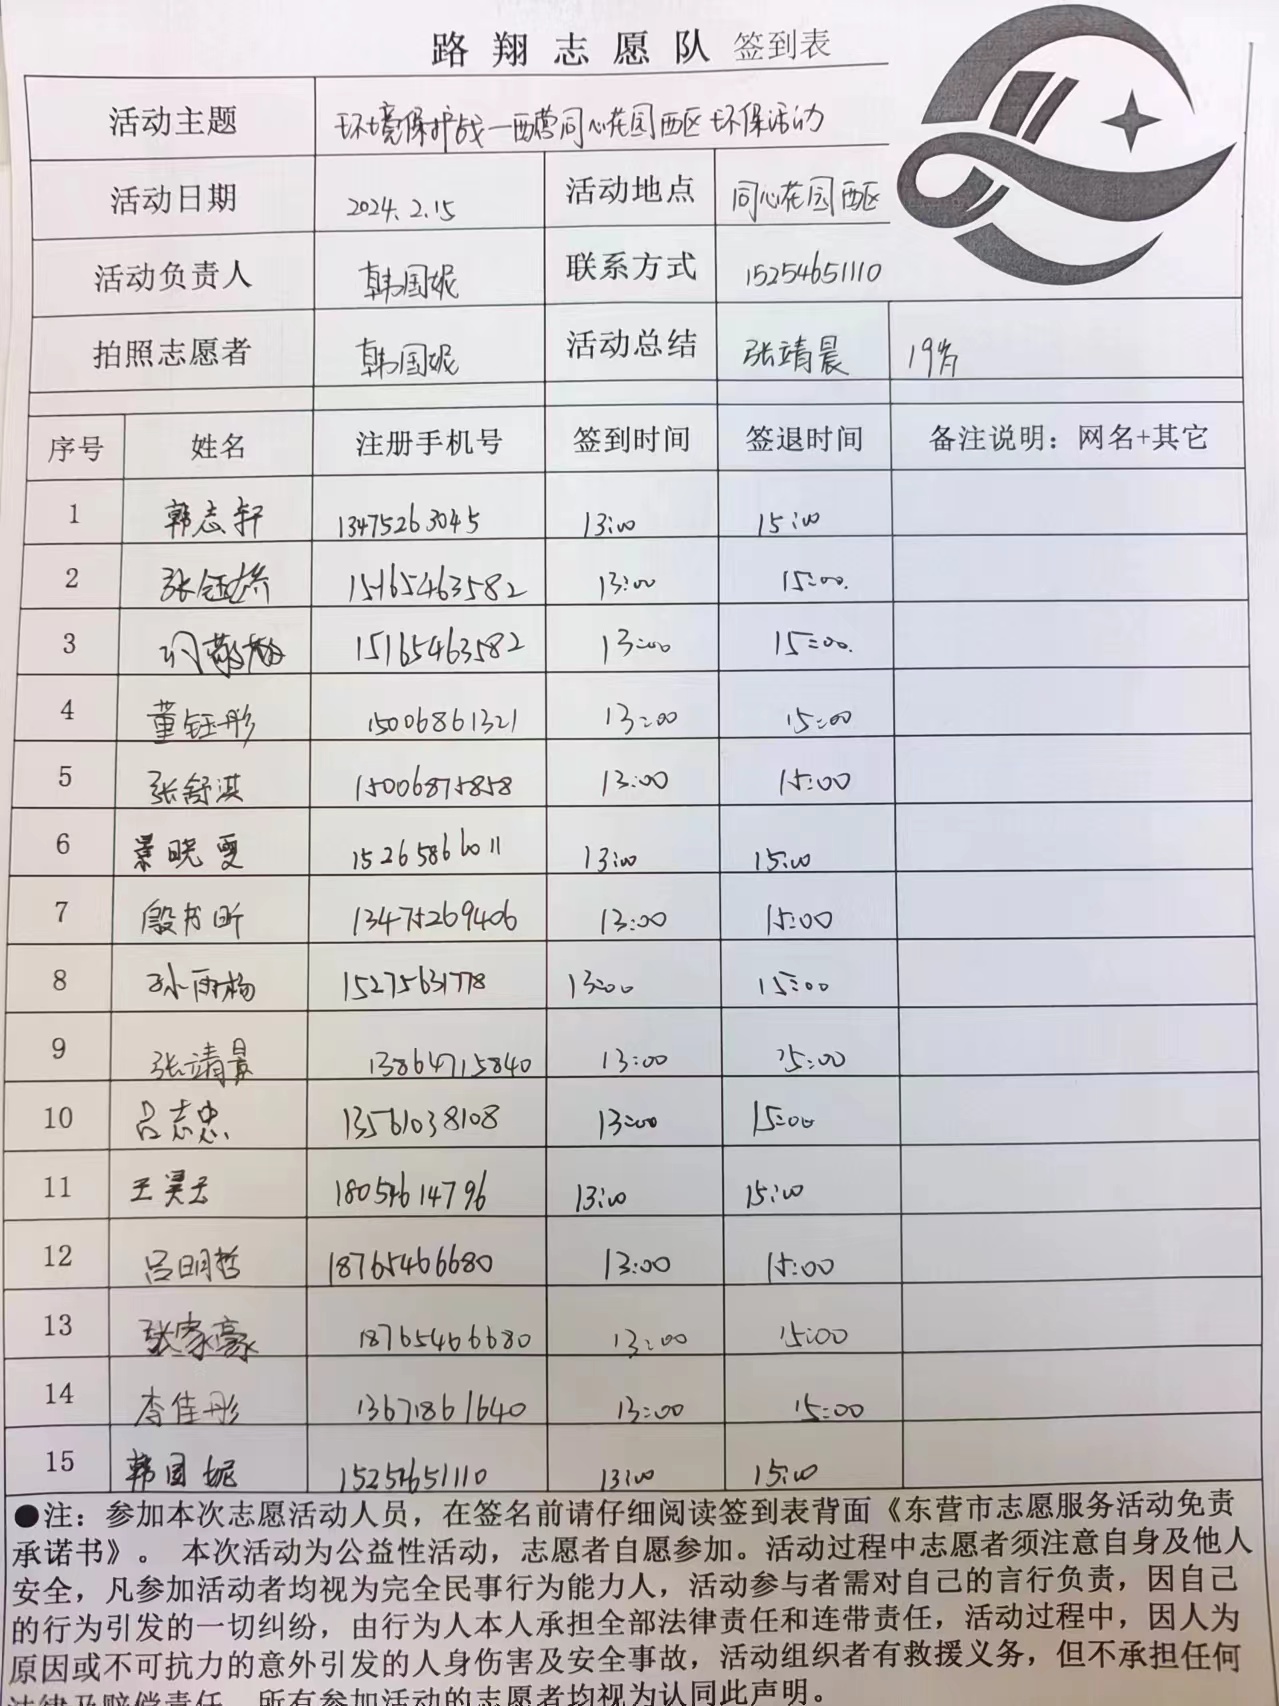 路翔志愿队 签到表
活动主题 环境保护战一西营同心花园西区环保活动
活动日期 2024.2.15 活动地点 同心花园西区
活动负责人 韩国妮 联系方式 15254651110
拍照志愿者 韩国妮 活动总结 张靖晨 19岁
序号 姓名 注册手机号 签到时间 签退时间 备注说明：网名+其它
1 韩志轩 13475263045 13:00 15:00
2 张钰娇 15165463582 13:00 15:00.
3 15165463582 13:00 15:00.
4 董钰彤 15006861321 13:00 15:00
5 张舒淇 15006875858 13:00 15:00
6 景晓雯 15265866011 13:00 15:00
7 殷书昕 13475269406 13:00 15:00
8 孙雨杨 15275631778 13:00 15:00
9 张靖晨 13864715840 13:00 25:00
10 吕志忠 13561038108 13:00 15:00
11 王昊天 18054614796 13:00 15:00
12 吕明哲 18765466680 13:00 15:00
13 张家豪 18765466680 13:00 15:00
14 李佳彤 13671861640 13:00 15:00
15 韩国妮 15254651110 13:00 15:00
●注：参加本次志愿活动人员，在签名前请仔细阅读签到表背面《东营市志愿服务活动免责
承诺书》。 本次活动为公益性活动，志愿者自愿参加。活动过程中志愿者须注意自身及他人
安全，凡参加活动者均视为完全民事行为能力人，活动参与者需对自己的言行负责，因自己
的行为引发的一切纠纷，由行为人本人承担全部法律责任和连带责任，活动过程中，因人为
原因或不可抗力的意外引发的人身伤害及安全事故，活动组织者有救援义务，但不承担任何
法律及赔偿责任，所有参加活动的志愿者均视为认同此声明。